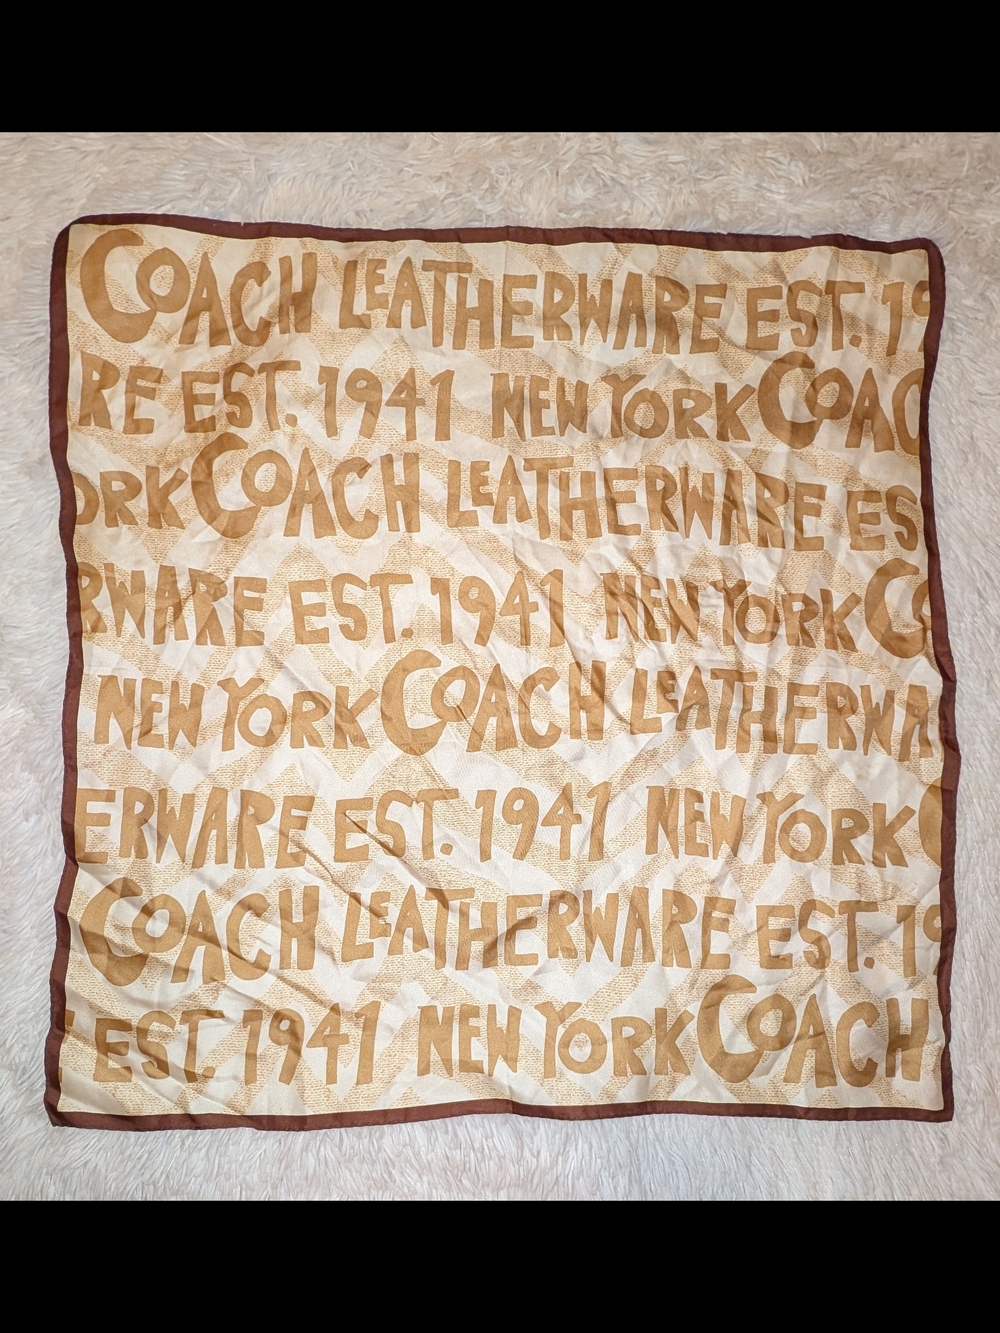 COACH LEATHERWARE EST. 19
RE EST. 1941 NEW YORK COAC
ORK COACH LEATHERWARE ES
RWARE EST. 1941 NEW YORK CO
NEW YORK COACH LEATHERWA
ERWARE EST. 1941 NEW YORK C
COACH LEATHERWARE EST. 19
EST. 1941 NEW YORK COACH